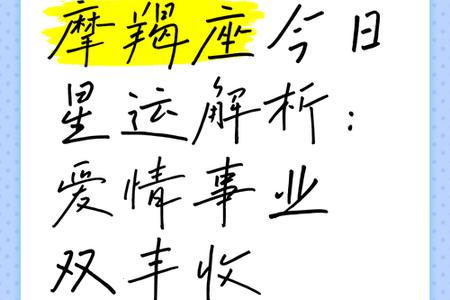 摩羯座今日
星运解析：
爱情事业
双丰收